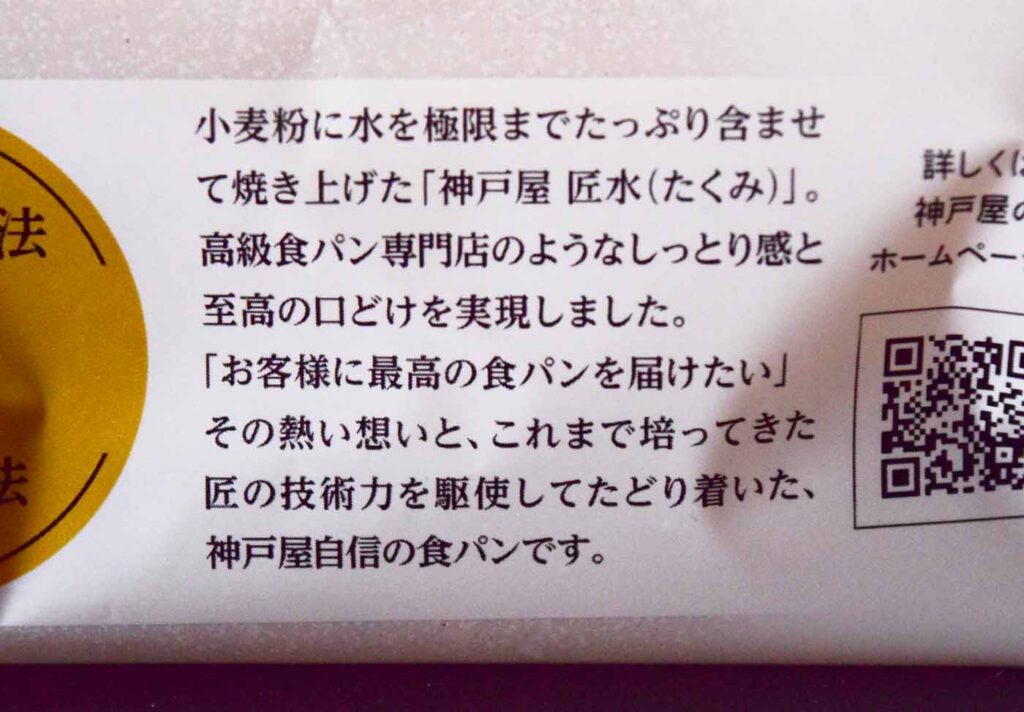 小麦粉に水を極限までたっぷり含ませ
て焼き上げた「神戸屋 匠水(たくみ)」。
高級食パン専門店のようなしっとり感と
至高の口どけを実現しました。
「お客様に最高の食パンを届けたい」
その熱い想いと、これまで培ってきた
匠の技術力を駆使してたどり着いた、
神戸屋自信の食パンです。
法
法
詳しくは
神戸屋の
ホームペー